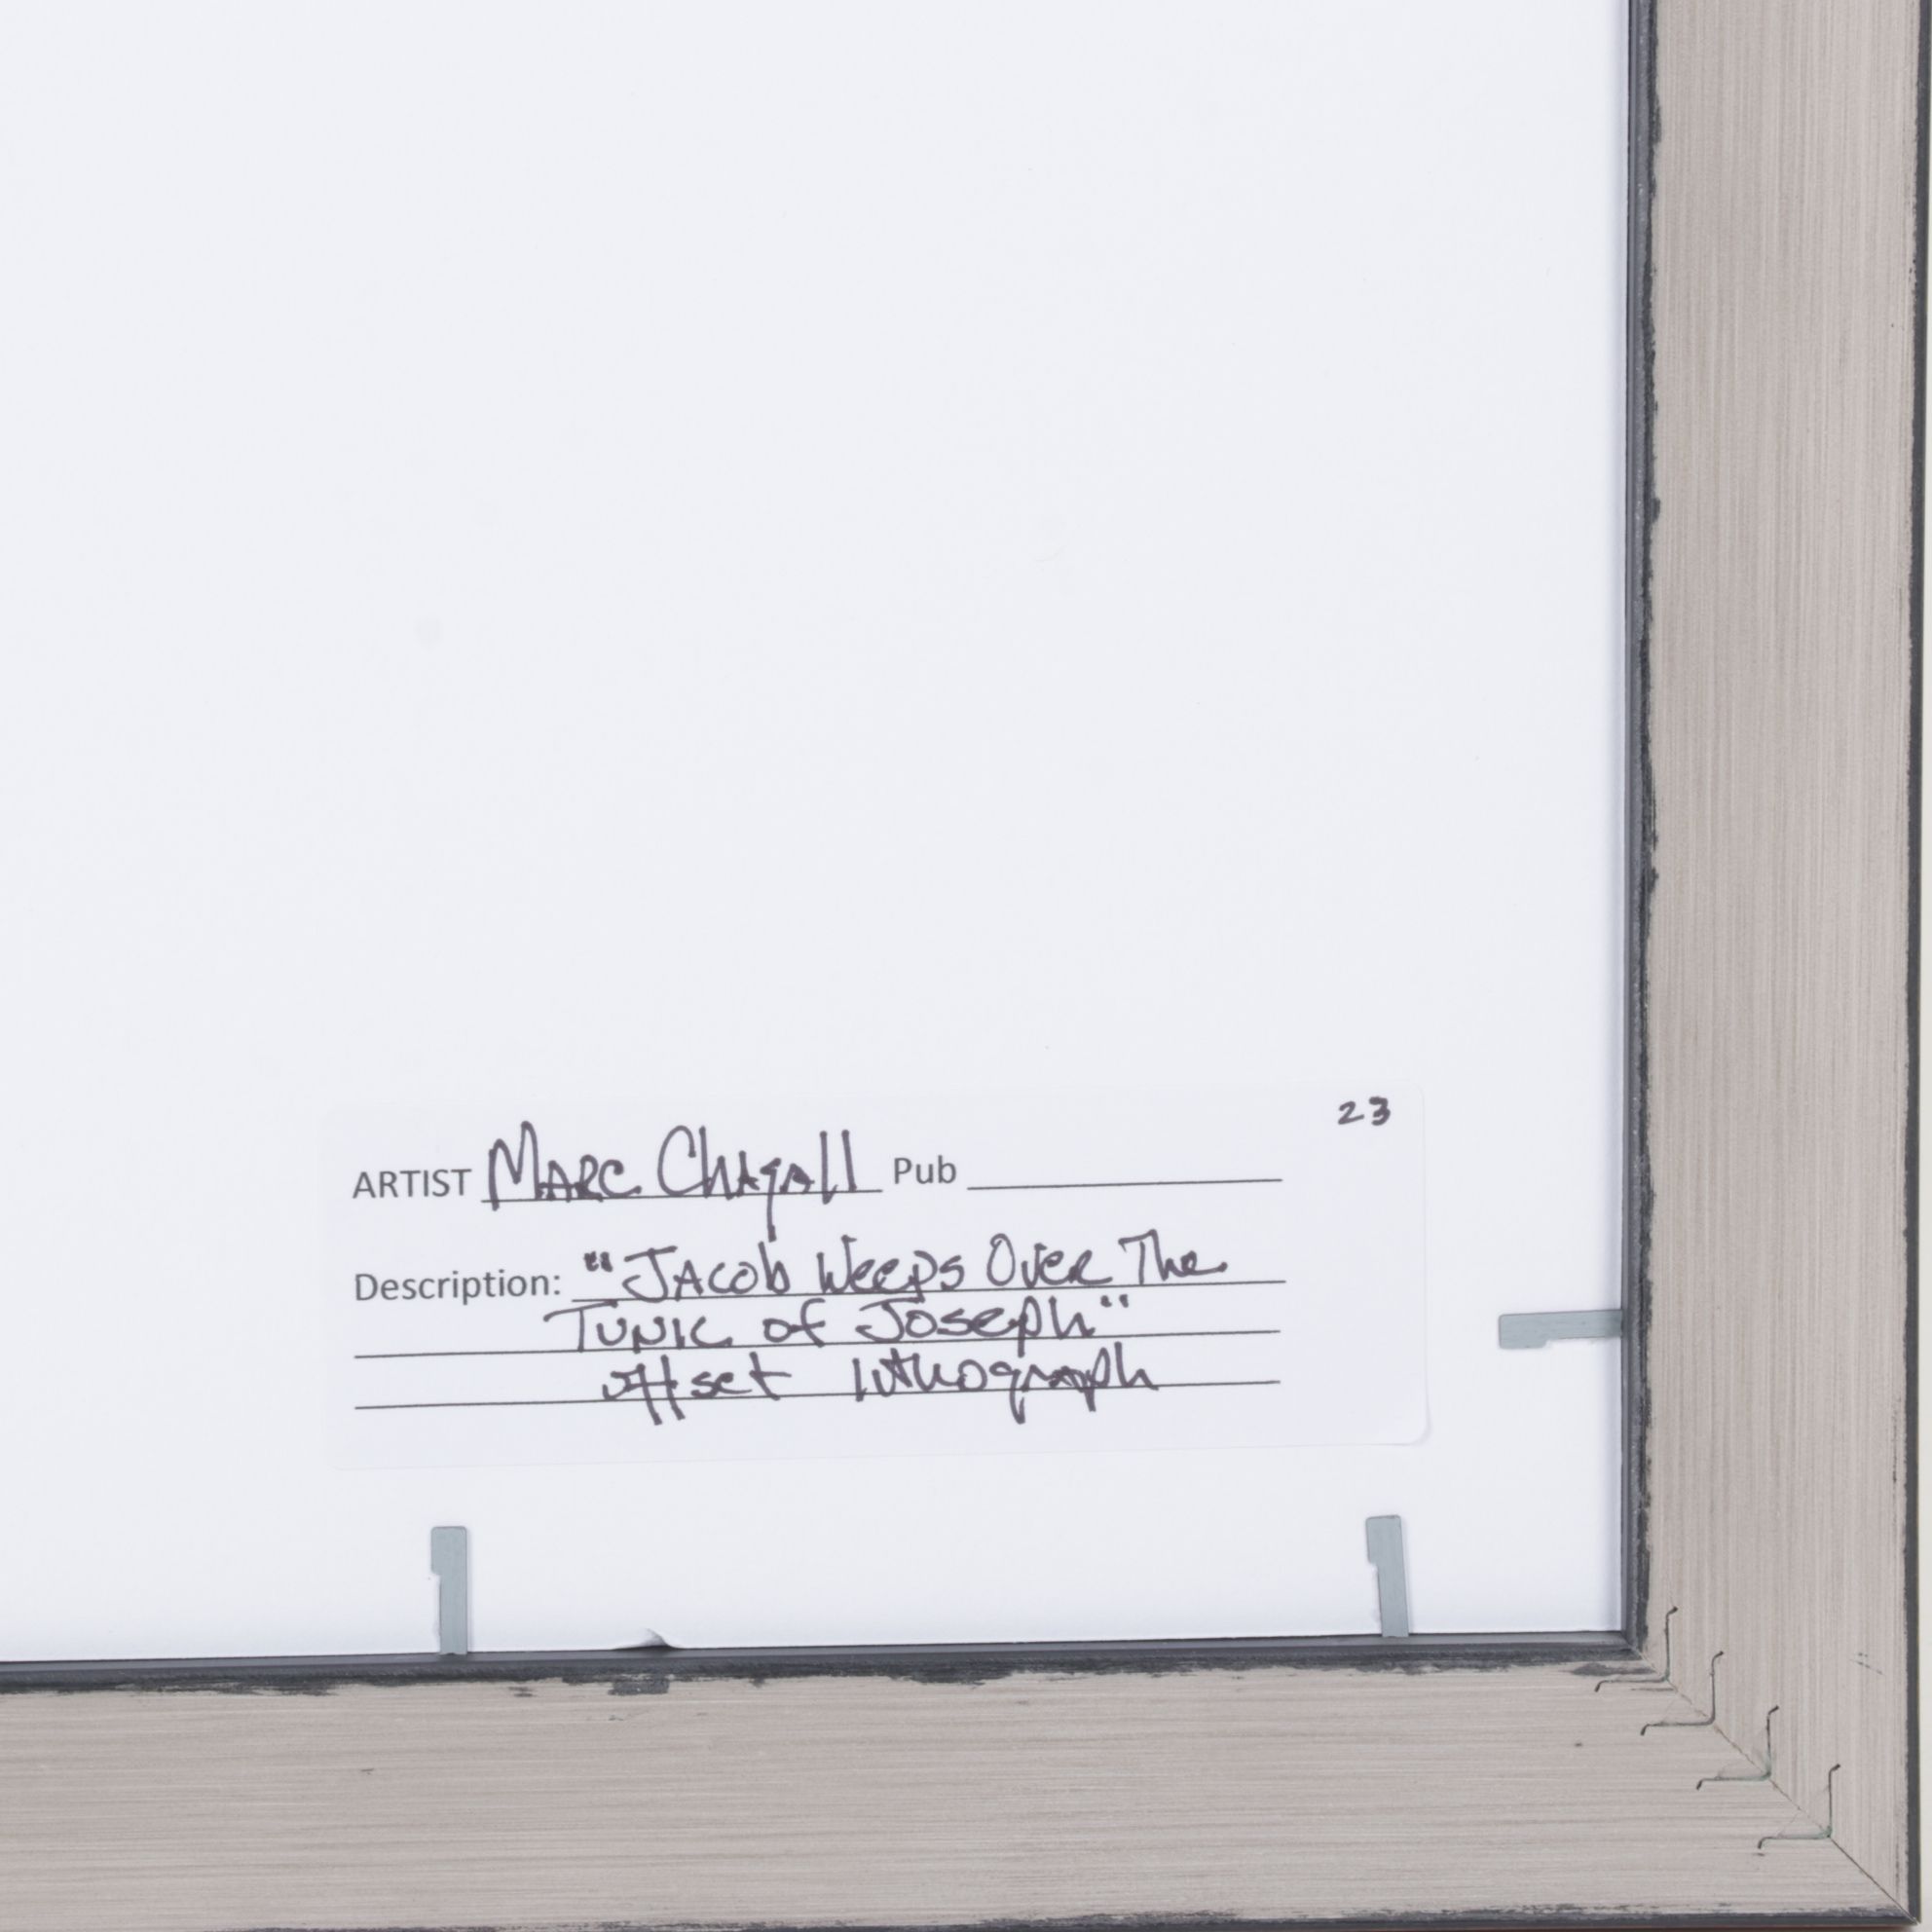 23
ARTIST MARC Chagall Pub
Description: "JACob Weeps Over The
Tunic of Joseph"
offset lithograph